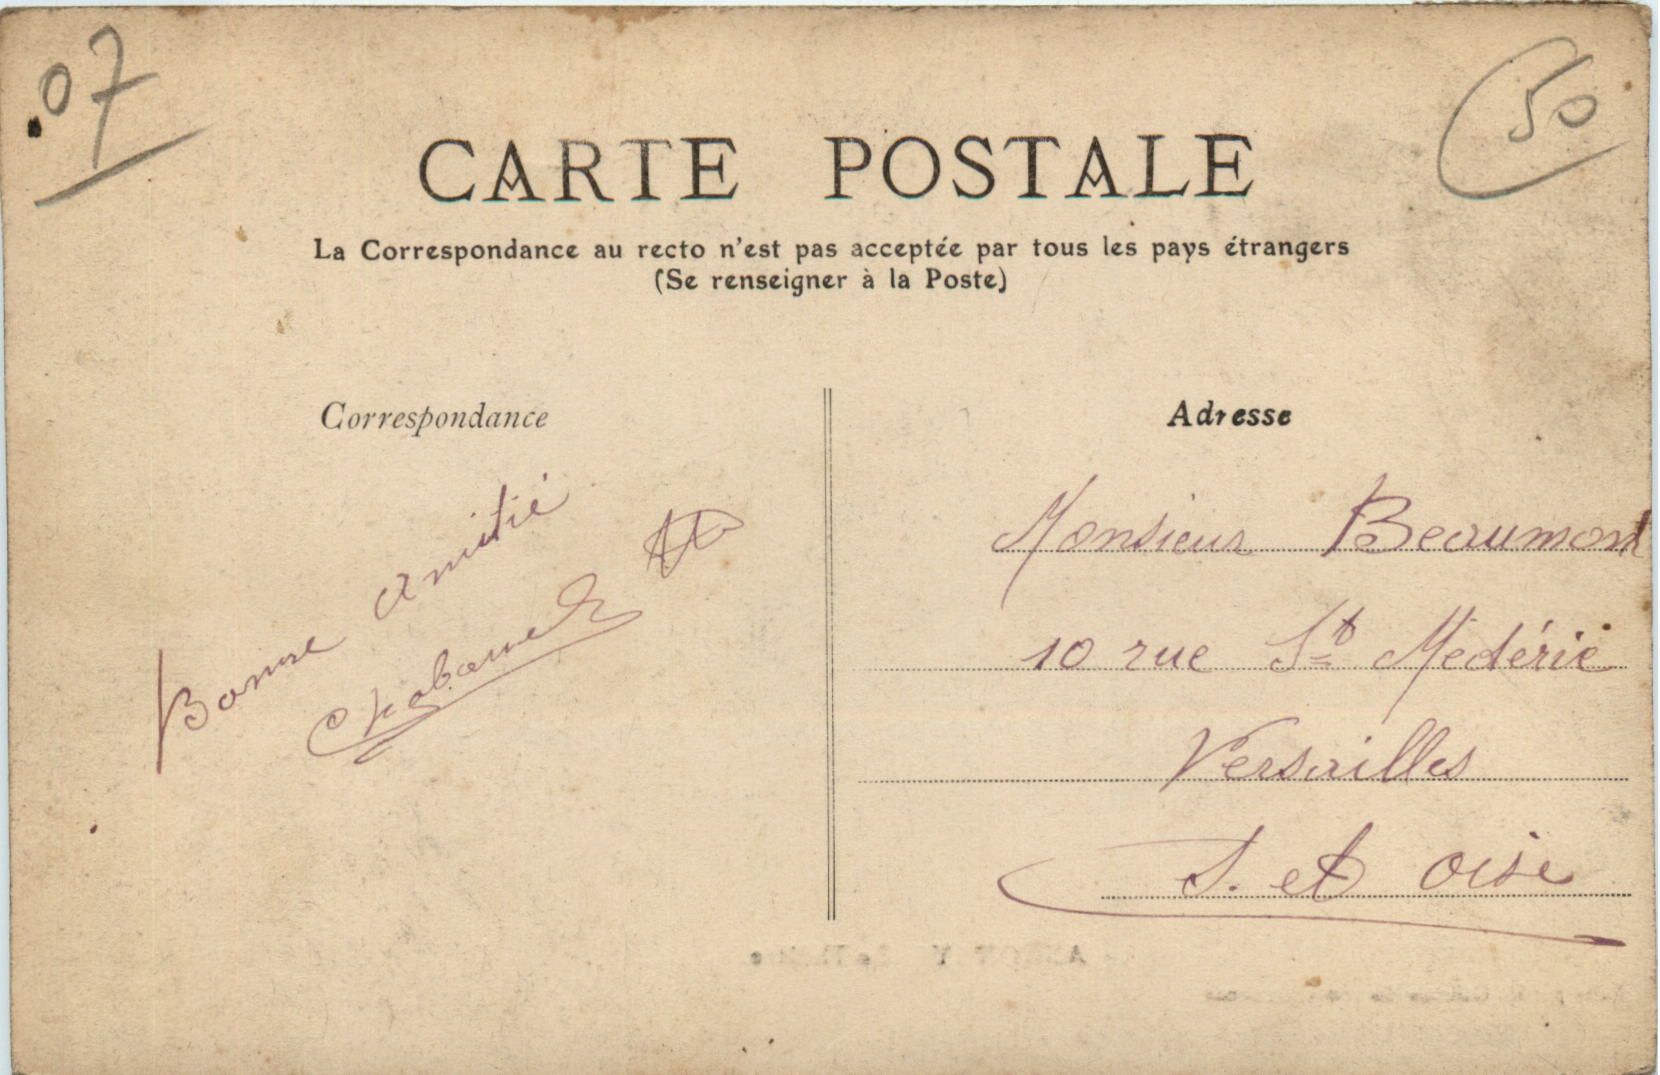 .07
50
CARTE POSTALE
La Correspondance au recto n'est pas acceptée par tous les pays étrangers
(Se renseigner à la Poste)
Correspondance
Bonne amitié
Adresse
Monsieur Beaumont
10 rue St Médéric
Versailles
S. et Oise